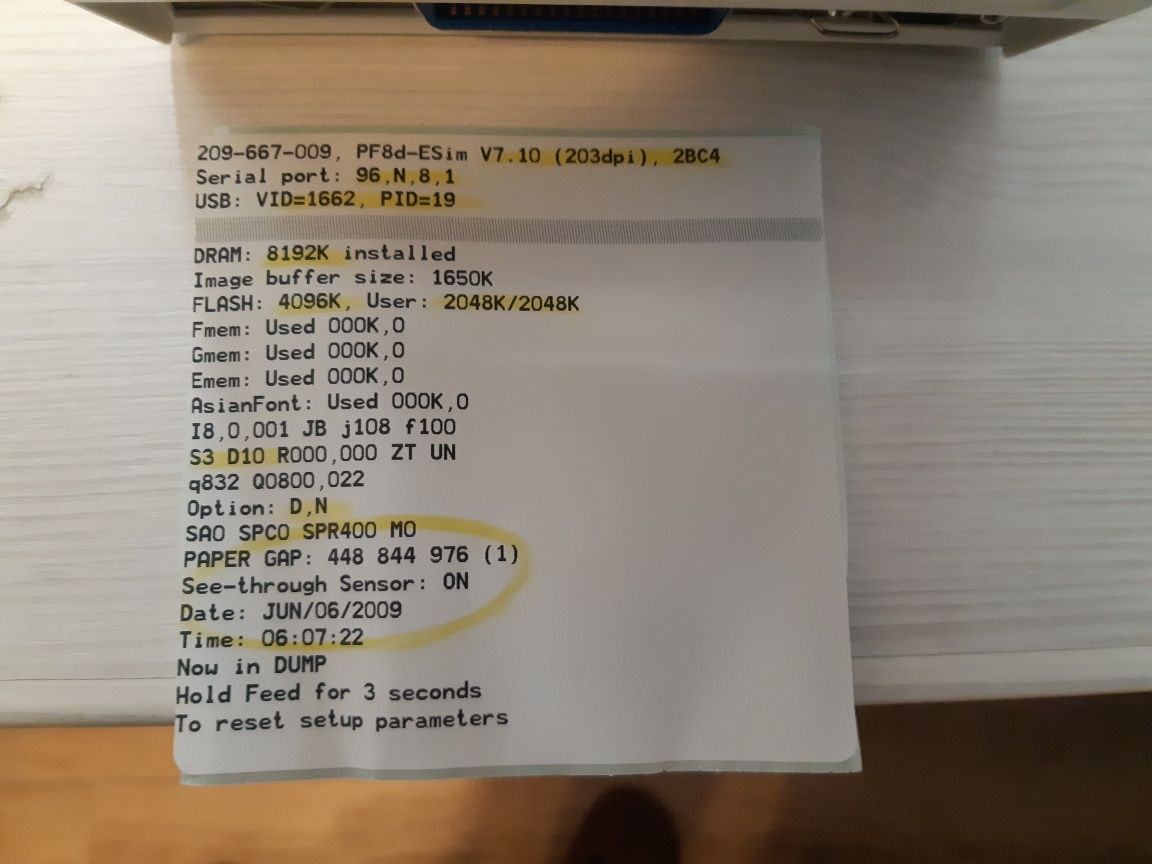 209-667-009, PF8d-ESim V7.10 (203dpi), 2BC4
Serial port: 96,N,8,1
USB: VID=1662, PID=19
DRAM: 8192K installed
Image buffer size: 1650K
FLASH: 4096K, User: 2048K/2048K
Fmem: Used 000K,0
Gmem: Used 000K,0
Emem: Used 000K,0
AsianFont: Used 000K,0
I8,0,001 JB j108 f100
S3 D10 R000,000 ZT UN
q832 Q0800,022
Option: D,N
SA0 SPC0 SPR400 M0
PAPER GAP: 448 844 976 (1)
See-through Sensor: ON
Date: JUN/06/2009
Time: 06:07:22
Now in DUMP
Hold Feed for 3 seconds
To reset setup parameters